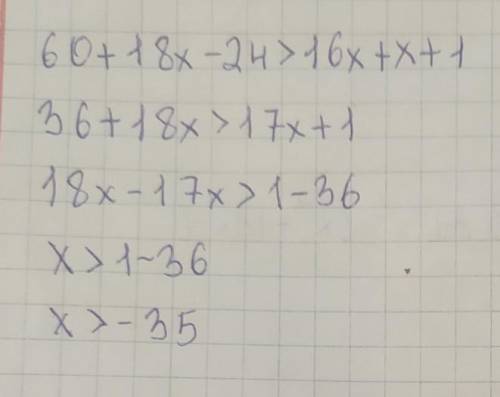 60+18x-24>16x+x+1
36+18x>17x+1
18x-17x>1-36
x>1-36
x>-35